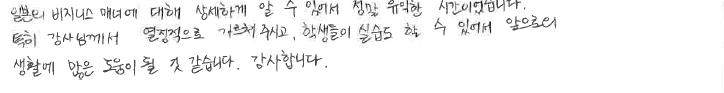 일본의 비지니스 매너에 대해 상세하게 알 수 있어서 정말 유익한 시간이었습니다.
특히 강사님께서 열정적으로 가르쳐 주시고, 학생들이 실습도 할 수 있어서 앞으로의
생활에 많은 도움이 될 것 같습니다. 감사합니다.